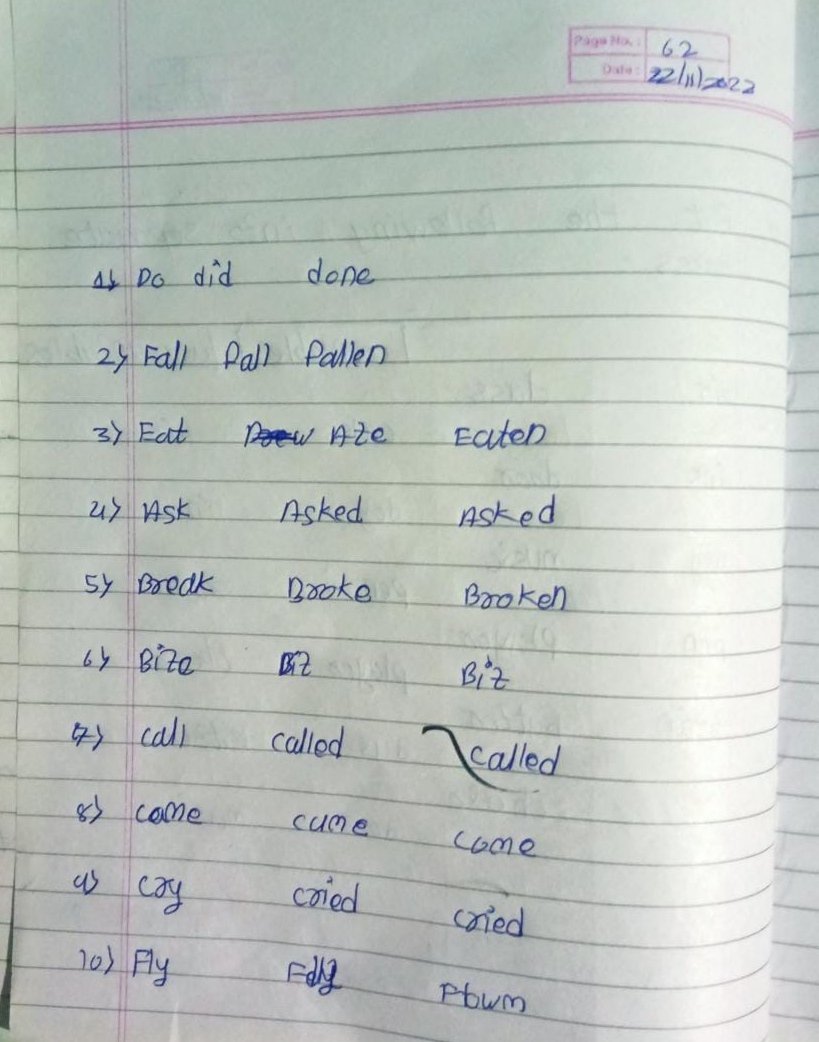 Page No.: 62
Date: 22/11/2022
1) Do did done
2) Fall Fall Fallen
3) Eat Ate Eaten
4) Ask Asked Asked
5) Break Broke Broken
6) Bite Bit Bit
7) call called called
8) come came come
9) cry cried cried
10) Fly